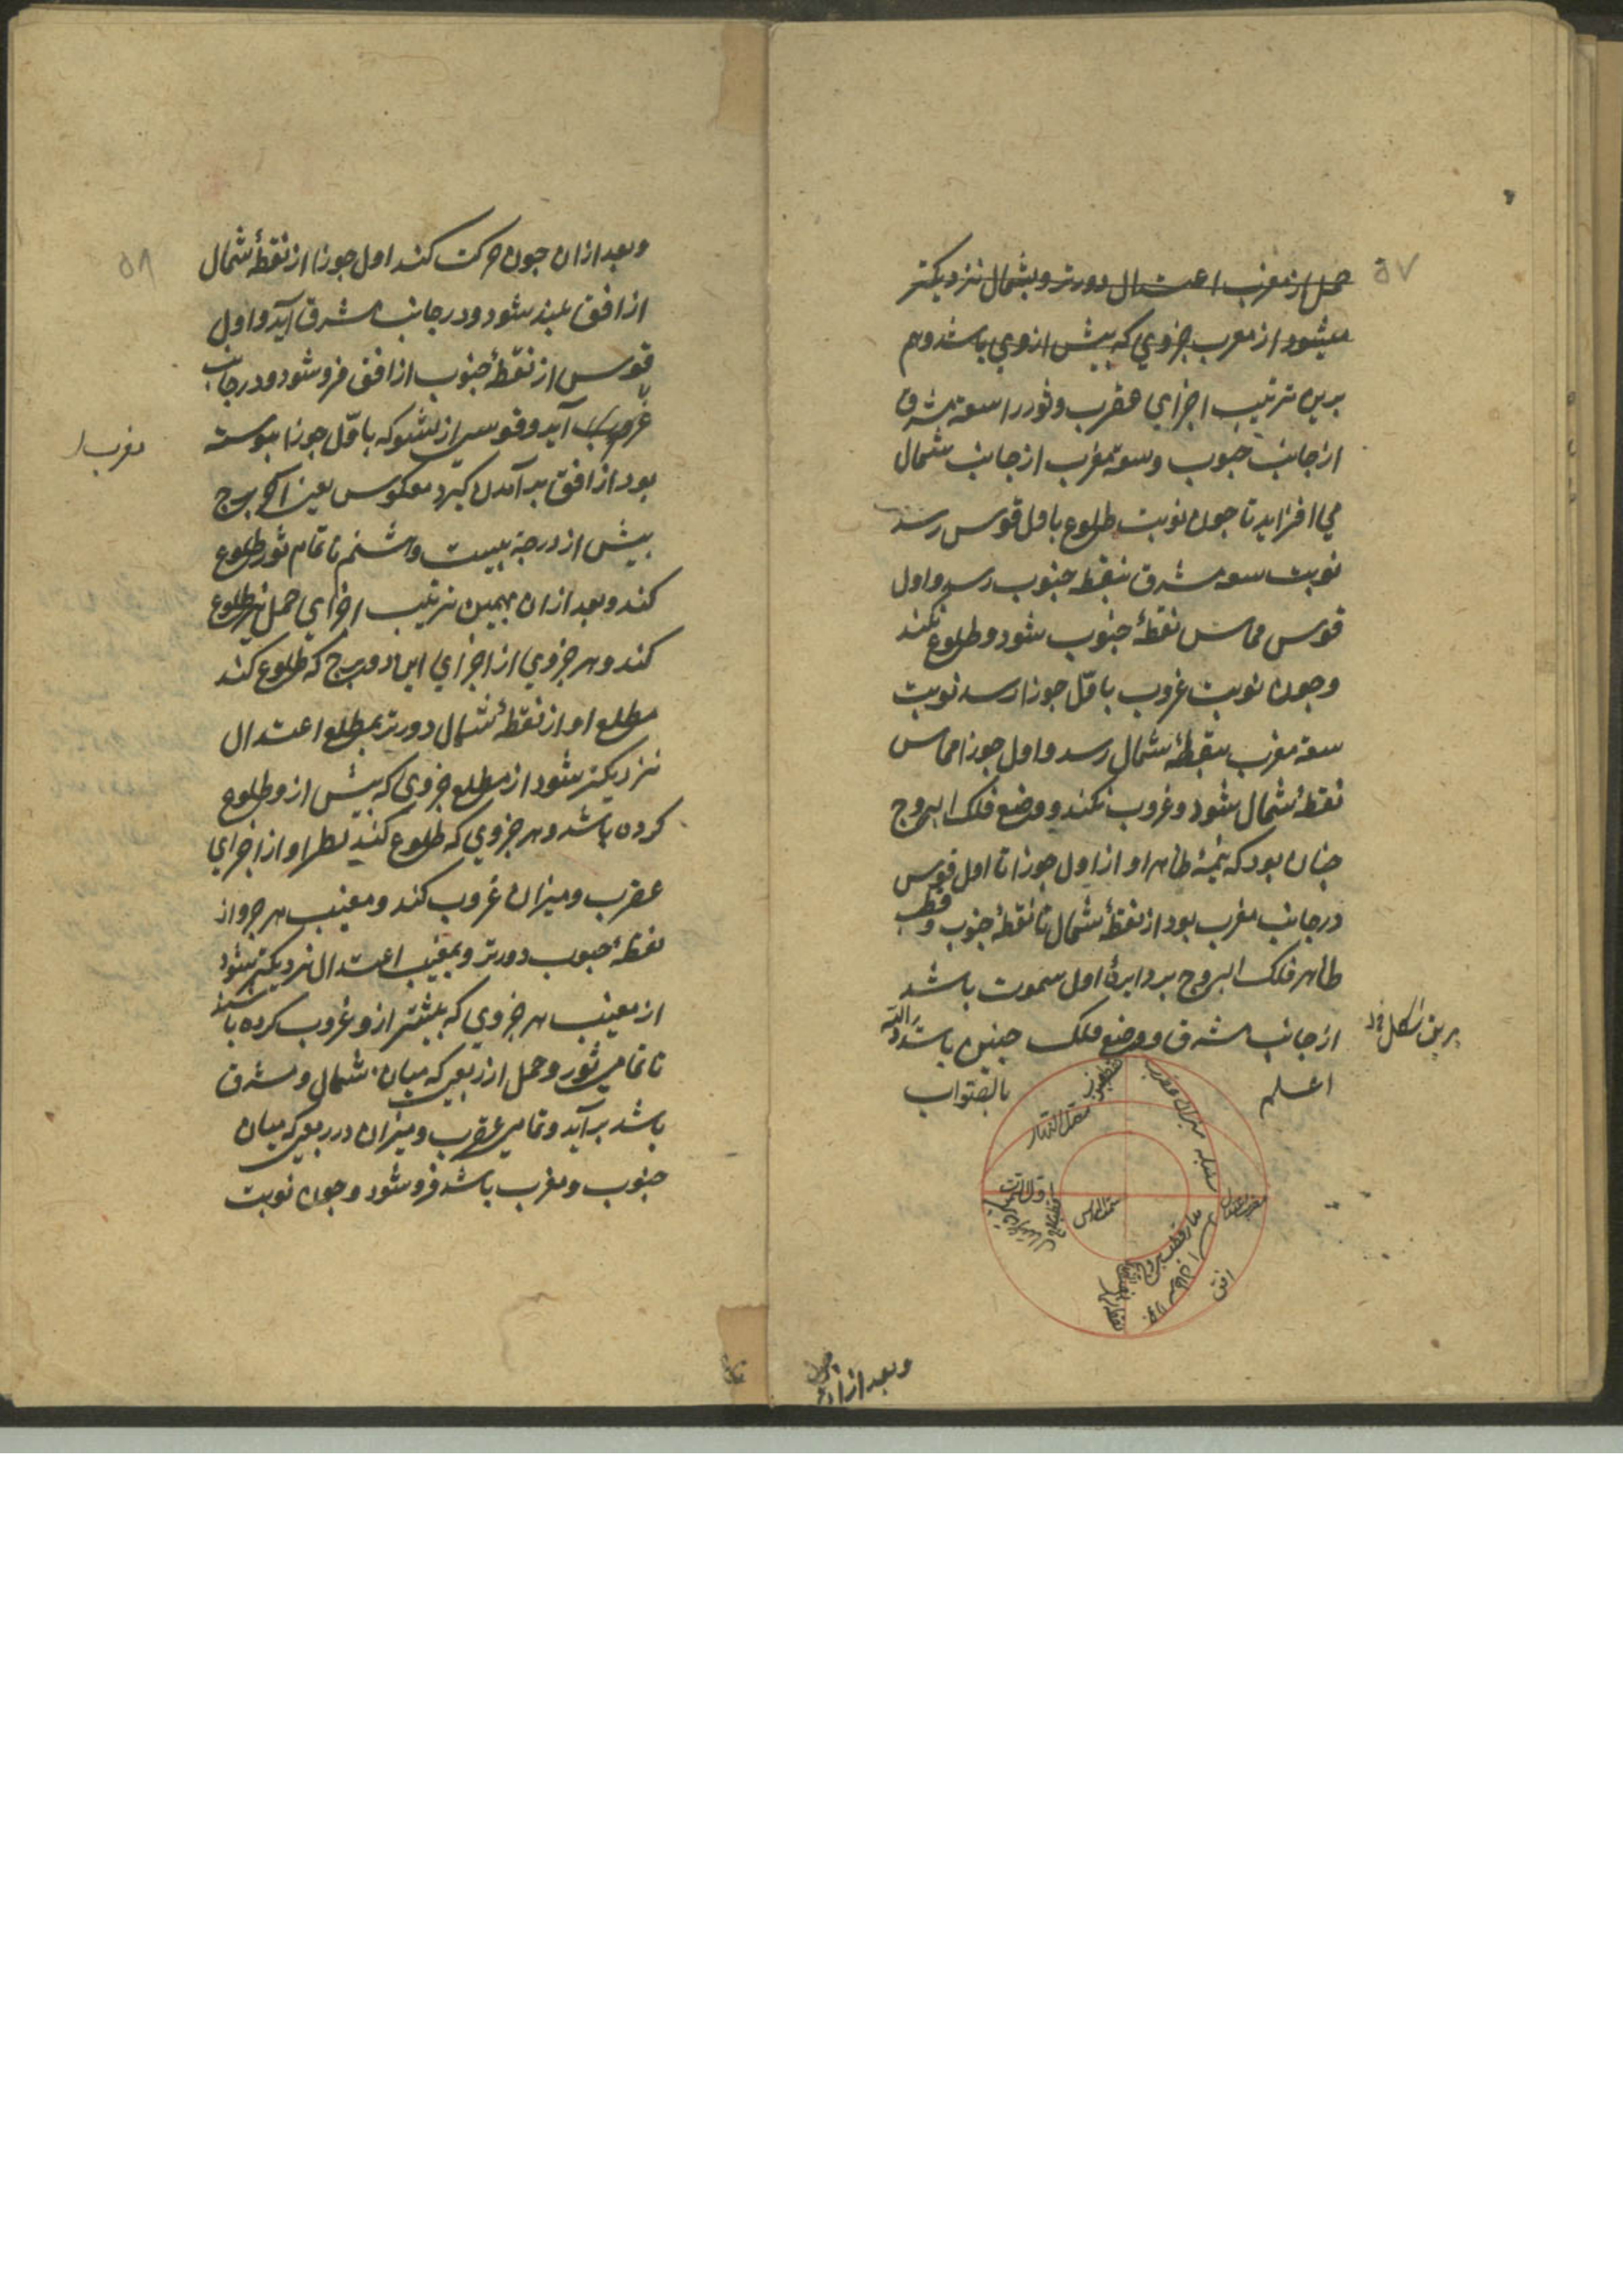 ۵۷
حمل از مغرب اعتدال دورتر و بشمال نزدیکتر
میشود از مغرب جزوی که بیش ازوی باشد و هم
برین ترتیب اجزای عقرب و ثور را سعة مشرق
از جانب جنوب و سعة مغرب از جانب شمال
می افزاید تا جون نوبت طلوع باول قوس رسد
نوبت سعة مشرق بنقطه جنوب رسد و اول
قوس مماس نقطهٔ جنوب شود و طلوع نکند
و جون نوبت غروب باوّل جوزا رسد نوبت
سعة مغرب بنقطهٔ شمال رسد و اول جوزا مماس
نقطهٔ شمال شود و غروب نکند و وضع فلک البروج
جنان بود که نیمهٔ ظاهر او از اول جوزا تا اول قوس
در جانب مغرب بود از نقطهٔ شمال تا نقطهٔ جنوب و قطب
ظاهر فلک البروج بر دایرهٔ اول سموت باشد
از جانب مشرق و وضع فلک جنین باشد والله
برین شکل
اعلم
بالصّواب
نقطه جنوب
معدل النهار
میزان عقرب
سنبله
اول السموت
سمت الراس
مغرب اعتدال
مدار قطب بروج
افق
نقطه شمال
و بعد از ان جون
۵۸
و بعد از ان جون حرکت کند اول جوزا از نقطهٔ شمال
از افق بلند شود و در جانب مشرق آید و اول
قوس از نقطهٔ جنوب از افق فرو شود و در جانب
آید و قوسی از ثور که باوّل جوزا بیوسته
مغرب
بود از افق بر آمدن کیرد معکوس یعنی آخر برج
بیش از درجهٔ بیست و هشتم تا تمام ثور طلوع
کند و بعد از ان بهمین ترتیب اجزای حمل نیز طلوع
کند و هر جزوی از اجزای این دو برج که طلوع کند
مطلع او از نقطهٔ شمال دورتر بمطلع اعتدال
نزدیکتر شود از مطلع جزوی که بیش از و طلوع
کرده باشد و هر جزوی که طلوع کند نظیر او از اجزای
عقرب و میزان غروب کند و مغیب هر جزو از
نقطهٔ جنوب دورتر و بمغیب اعتدال نزدیکتر شود
از مغیب هر جزوی که بیشتر از و غروب کرده باشد
تا تمامی ثور و حمل از ربعی که میان شمال و مشرق
باشد بر آید و تمامی عقرب و میزان در ربعی که میان
جنوب و مغرب باشد فرو شود و جون نوبت